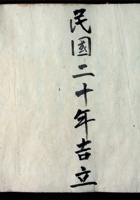 民國二十年吉立